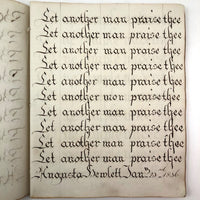 Let another man praise thee
Let another man praise thee
Let another man praise thee
Let another man praise thee
Let another man praise thee
Let another man praise thee
Let another man praise thee
Let another man praise thee
Let another man praise thee
Let another man praise thee
Augusta Hewlett Jan